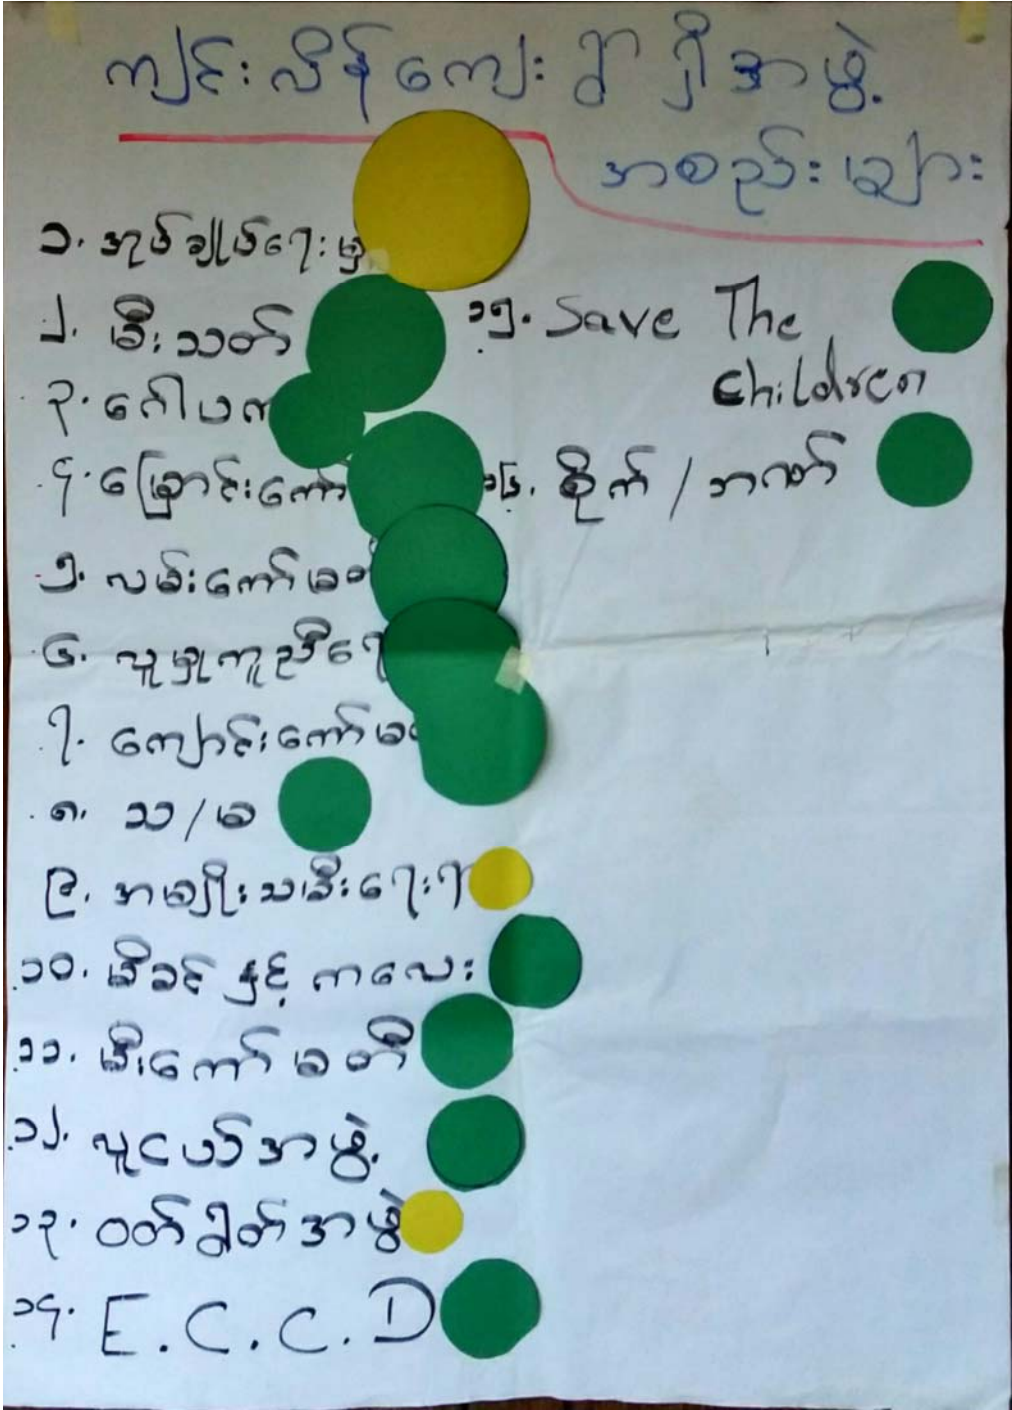 ကျင်းလိန်ကျေးရွာရှိအဖွဲ့
အစည်းများ
၁. အုပ်ချုပ်ရေးမှူ
၂. မီးသတ်
၃. ဂေါပက
၄. မြှောင်းကော်
၅. လမ်းကော်မ
၆. လူမှုကူညီရေ
၇. ကျောင်းကော်မ
၈. သ/မ
၉. အမျိုးသမီးရေးရာ
၁၀. မိခင်နှင့် ကလေး
၁၁. မီးကော်မတီ
၁၂. လူငယ်အဖွဲ့
၁၃. ဝတ်ရွတ်အဖွဲ့
၁၄. E.C.C.D
၁၅. Save The
Children
၁၆. စိုက်/ဘဏ်